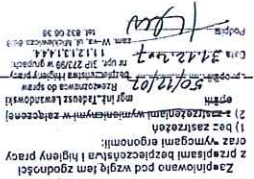 Zaopiniowano pod względem zgodności
z przepisami bezpieczeństwa i higieny pracy
oraz wymogami ergonomii:
1) bez zastrzeżeń
2) z zastrzeżeniami wymienionymi w załączonej
opinii
mgr inż. Tadeusz Lewandowski
Rzeczoznawca do spraw
Bezpieczeństwa i Higieny Pracy
nr upr. 27/99 w grupach
1.1 1.2 1.3 1.4 4.4
50/12/07
Data 31.12.
Podpis
zam. W-wa, ul. Mickiewicza
tel. 833 06 38